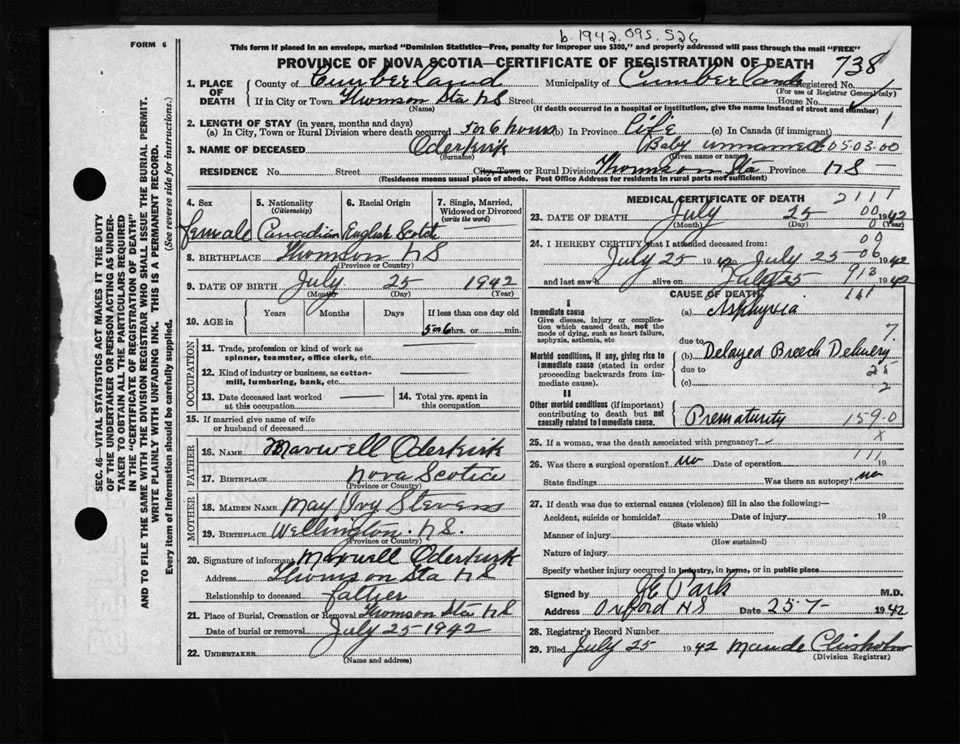 b. 1942.095.526
FORM 6
This form if placed in an envelope, marked "Dominion Statistics—Free, penalty for improper use $300," and properly addressed will pass through the mail "FREE"
PROVINCE OF NOVA SCOTIA—CERTIFICATE OF REGISTRATION OF DEATH 738
1. PLACE OF DEATH
County of Cumberland Municipality of Cumberland Registered No.
(For use of Registrar General only)
If in City or Town Thomson Sta NS Street House No.
(Name) (If death occurred in a hospital or institution, give the name instead of street and number)
2. LENGTH OF STAY (in years, months and days)
(a) In City, Town or Rural Division where death occurred 5 or 6 hours (b) In Province life (c) In Canada (if immigrant) 1
3. NAME OF DECEASED Oderkirk Baby unnamed 05.03.00
(Surname) (Given name or names)
RESIDENCE No. Street City, Town or Rural Division Thomson Sta Province NS
(Residence means usual place of abode. Post Office Address for residents in rural parts not sufficient)
4. Sex
female
5. Nationality
(Citizenship)
Canadian
6. Racial Origin
English Scotch
7. Single, Married, Widowed or Divorced
(write the word)
8. BIRTHPLACE Thomson NS
(Province or Country)
9. DATE OF BIRTH July 25 1942
(Month) (Day) (Year)
10. AGE in
Years Months Days If less than one day old
5 or 6 hrs. or min.
OCCUPATION
11. Trade, profession or kind of work as spinner, teamster, office clerk, etc.
12. Kind of industry or business, as cotton-mill, lumbering, bank, etc.
13. Date deceased last worked at this occupation
14. Total yrs. spent in this occupation
15. If married give name of wife or husband of deceased
FATHER
16. NAME Maxwell Oderkirk
17. BIRTHPLACE Nova Scotia
(Province or Country)
MOTHER
18. MAIDEN NAME May Ivy Stevens
19. BIRTHPLACE Wellington NS.
(Province or Country)
20. Signature of informant Maxwell Oderkirk
Address Thomson Sta NS
Relationship to deceased father
21. Place of Burial, Cremation or Removal Thomson Sta NS
Date of burial or removal July 25 1942
22. UNDERTAKER
(Name and address)
MEDICAL CERTIFICATE OF DEATH 2111
23. DATE OF DEATH July 25 00 1942
(Month) (Day) 0 (Year)
24. I HEREBY CERTIFY that I attended deceased from: 00
July 25 1942 to July 25 06 1942
and last saw h alive on July 25 913 1942
CAUSE OF DEATH 111
I
Immediate cause
Give disease, injury or complication which caused death, not the mode of dying, such as heart failure, asphyxia, asthenia, etc.
(a) Asphyxia
due to 7.
Morbid conditions, if any, giving rise to immediate cause (stated in order proceeding backwards from immediate cause).
(b) Delayed Breech Delivery
due to
(c) 2
II
Other morbid conditions (if important) contributing to death but not causally related to immediate cause.
Prematurity 159-0
25. If a woman, was the death associated with pregnancy? x
26. Was there a surgical operation? no Date of operation 111 19
State findings Was there an autopsy? no
27. If death was due to external causes (violence) fill in also the following:—
Accident, suicide or homicide? Date of injury 19
(State which)
Manner of injury
(How sustained)
Nature of injury
Specify whether injury occurred in industry, in home, or in public place
Signed by Park M.D.
Address Oxford NS Date 25-7- 1942
28. Registrar's Record Number
29. Filed July 25 1942 Maude Chisholm
(Division Registrar)
SEC. 46—VITAL STATISTICS ACT MAKES IT THE DUTY
OF THE UNDERTAKER OR PERSON ACTING AS UNDER-
TAKER TO OBTAIN ALL THE PARTICULARS REQUIRED
IN THE "CERTIFICATE OF REGISTRATION OF DEATH"
AND TO FILE THE SAME WITH THE DIVISION REGISTRAR WHO SHALL ISSUE THE BURIAL PERMIT.
WRITE PLAINLY WITH UNFADING INK. THIS IS A PERMANENT RECORD.
Every item of Information should be carefully supplied. (See reverse side for instructions.)